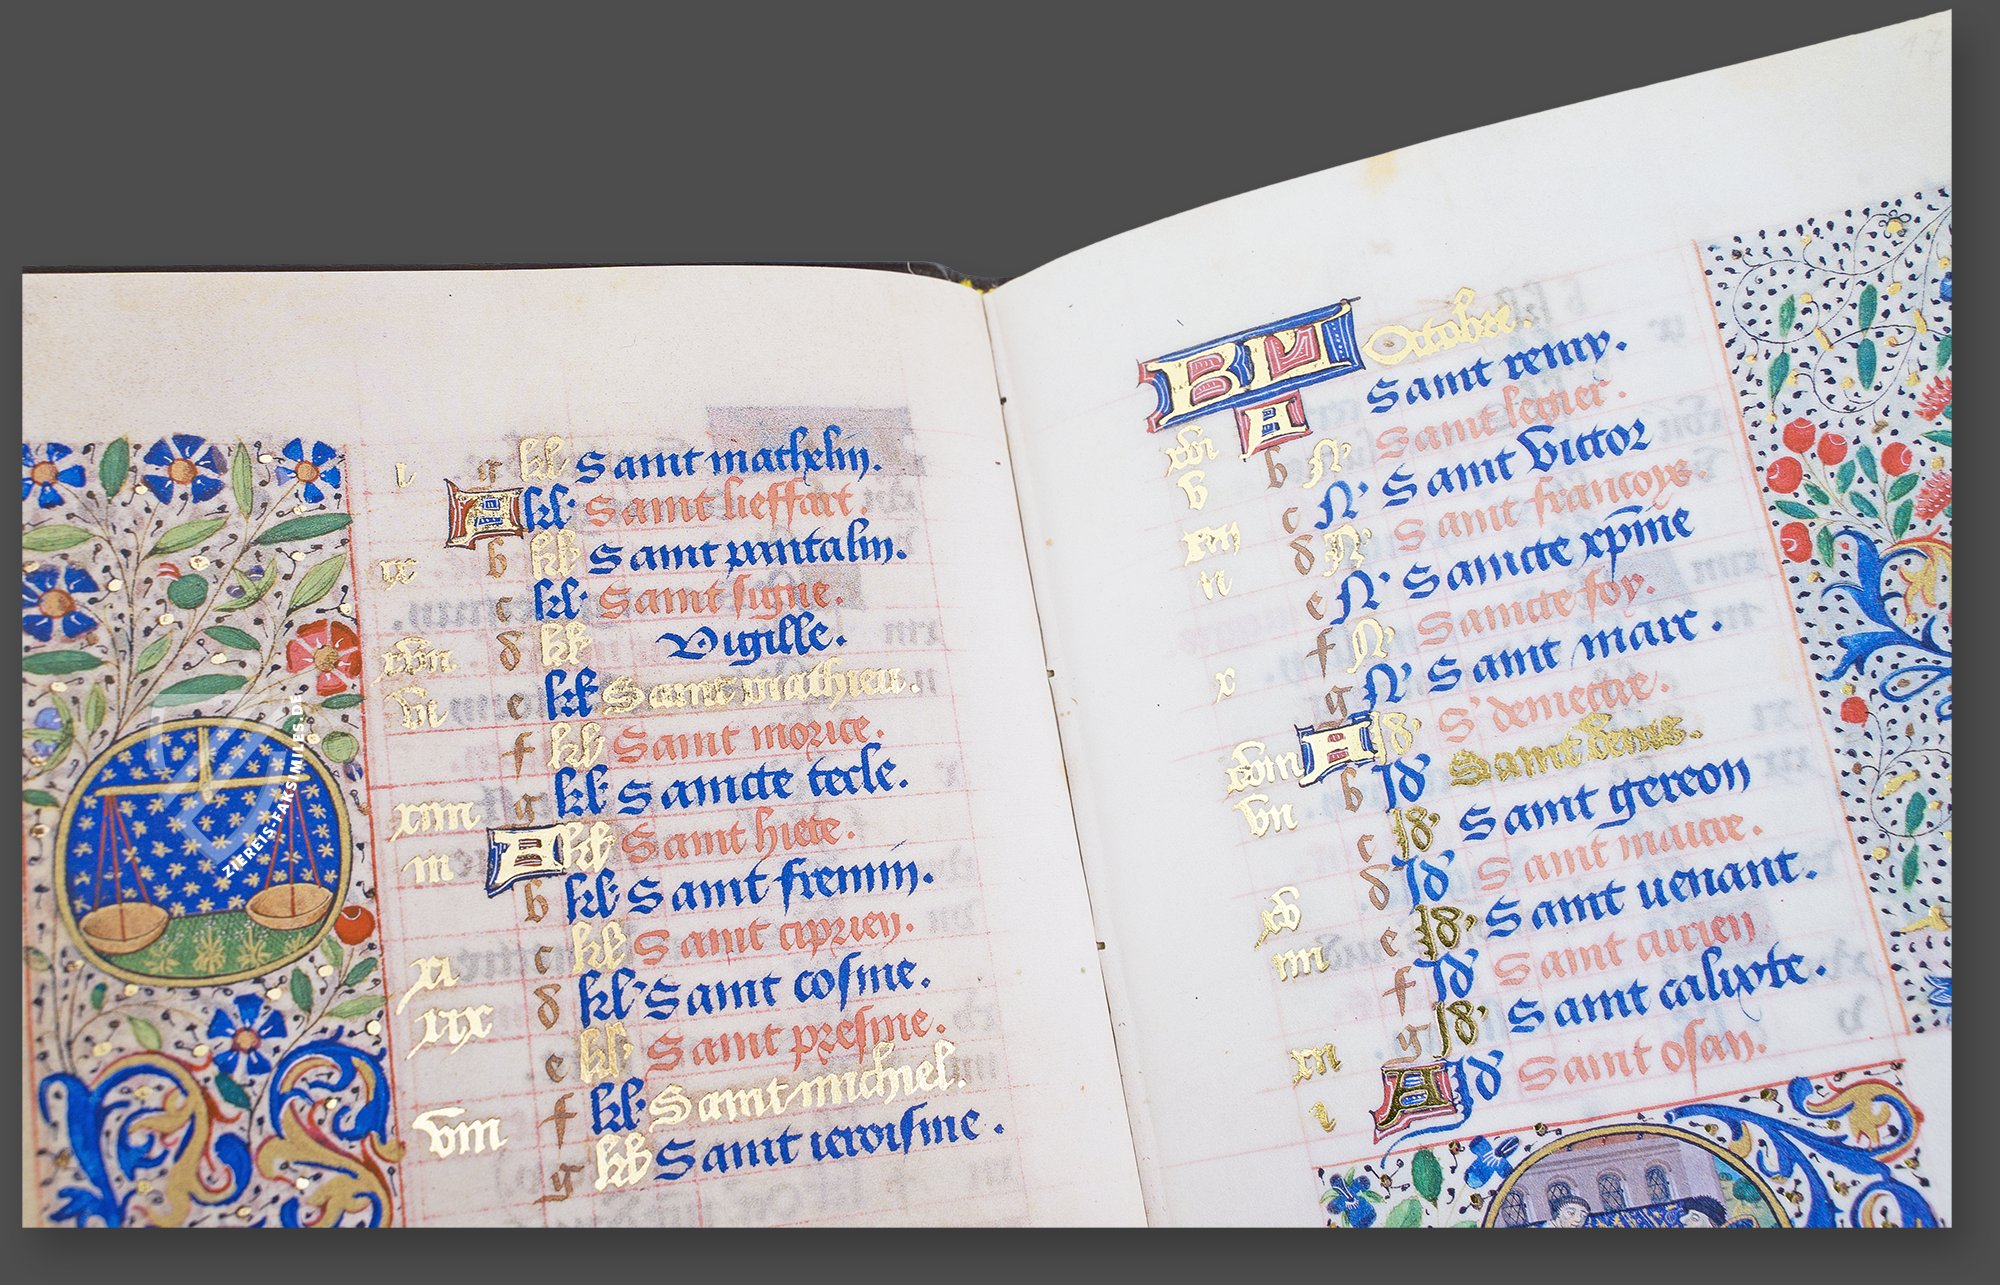 i g kl Saint mathelin.
A kl Saint lieffart.
ix b kl Saint pantalin.
c kl Saint signe.
xvii d kl Vigille.
vi e kl Saint mathieu.
f kl Saint morice.
xiiii g kl Saincte tecle.
iii A kl Saint hiete.
b kl Saint fremin.
xi c kl Saint ciprien.
xix d kl Saint cosme.
e kl Saint presme.
viii f kl Saint michiel.
g kl Saint ieroisme.
ZIEREIS-FAKSIMILES.DE
KL Octobre.
xvi A Saint remy.
v b N Saint legier.
xiii c N Saint victor
ii d N Saint francoys.
e N Saincte xpine
x f N Saincte foy.
g N Saint marc.
xviii A Id S' demectre.
vii b Id Saint denis.
c Id Saint gereon
xv d Id Saint maicre.
iiii e Id Saint uenant.
f Id Saint curien
xii g Id Saint calixte.
i A Id Saint osan.